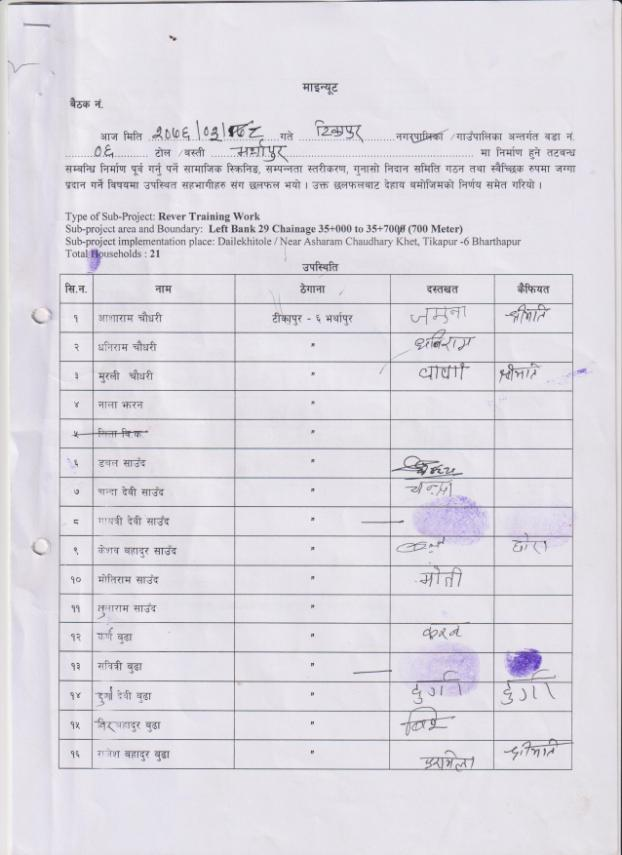 माइन्यूट
बैठक नं.
आज मिति २०७६/०३/ गते टिकापुर नगरपालिका /गाउँपालिका अन्तर्गत वडा नं.
०६ टोल /वस्ती भर्थापुर मा निर्माण हुने तटबन्ध
सम्बन्धि निर्माण पूर्व गर्नु पर्ने सामाजिक स्क्रिनिङ, सम्पन्नता स्तरीकरण, गुनासो निदान समिति गठन तथा स्वैच्छिक रुपमा जग्गा
प्रदान गर्ने विषयमा उपस्थित सहभागीहरु संग छलफल भयो । उक्त छलफलबाट देहाय बमोजिमको निर्णय समेत गरियो ।
Type of Sub-Project: Rever Training Work
Sub-project area and Boundary: Left Bank 29 Chainage 35+000 to 35+700 (700 Meter)
Sub-project implementation place: Dailekhitole / Near Asharam Chaudhary Khet, Tikapur -6 Bharthapur
Total Households : 21
उपस्थिति
सि.न. नाम ठेगाना दस्तखत कैफियत
१ आशाराम चौधरी टीकापुर - ६ भर्थापुर जमुना श्रीमति
२ धनिराम चौधरी " धनिराम
३ मुरली चौधरी " श्रीमति
४ नाला झरन "
५ सिता वि.क. "
६ डवल साउँद "
७ चन्दा देवी साउँद " चन्द्रा
८ गायत्री देवी साउँद "
९ केशव बहादुर साउँद " छोरा
१० मोतिराम साउँद " मोती
११ तुलाराम साउँद "
१२ कर्ण बुढा " करन
१३ सवित्री बुढा "
१४ दुर्गा देवी बुढा " दुर्गा दुर्गा
१५ विर बहादुर बुढा "
१६ राजेश बहादुर बुढा " श्रीमति